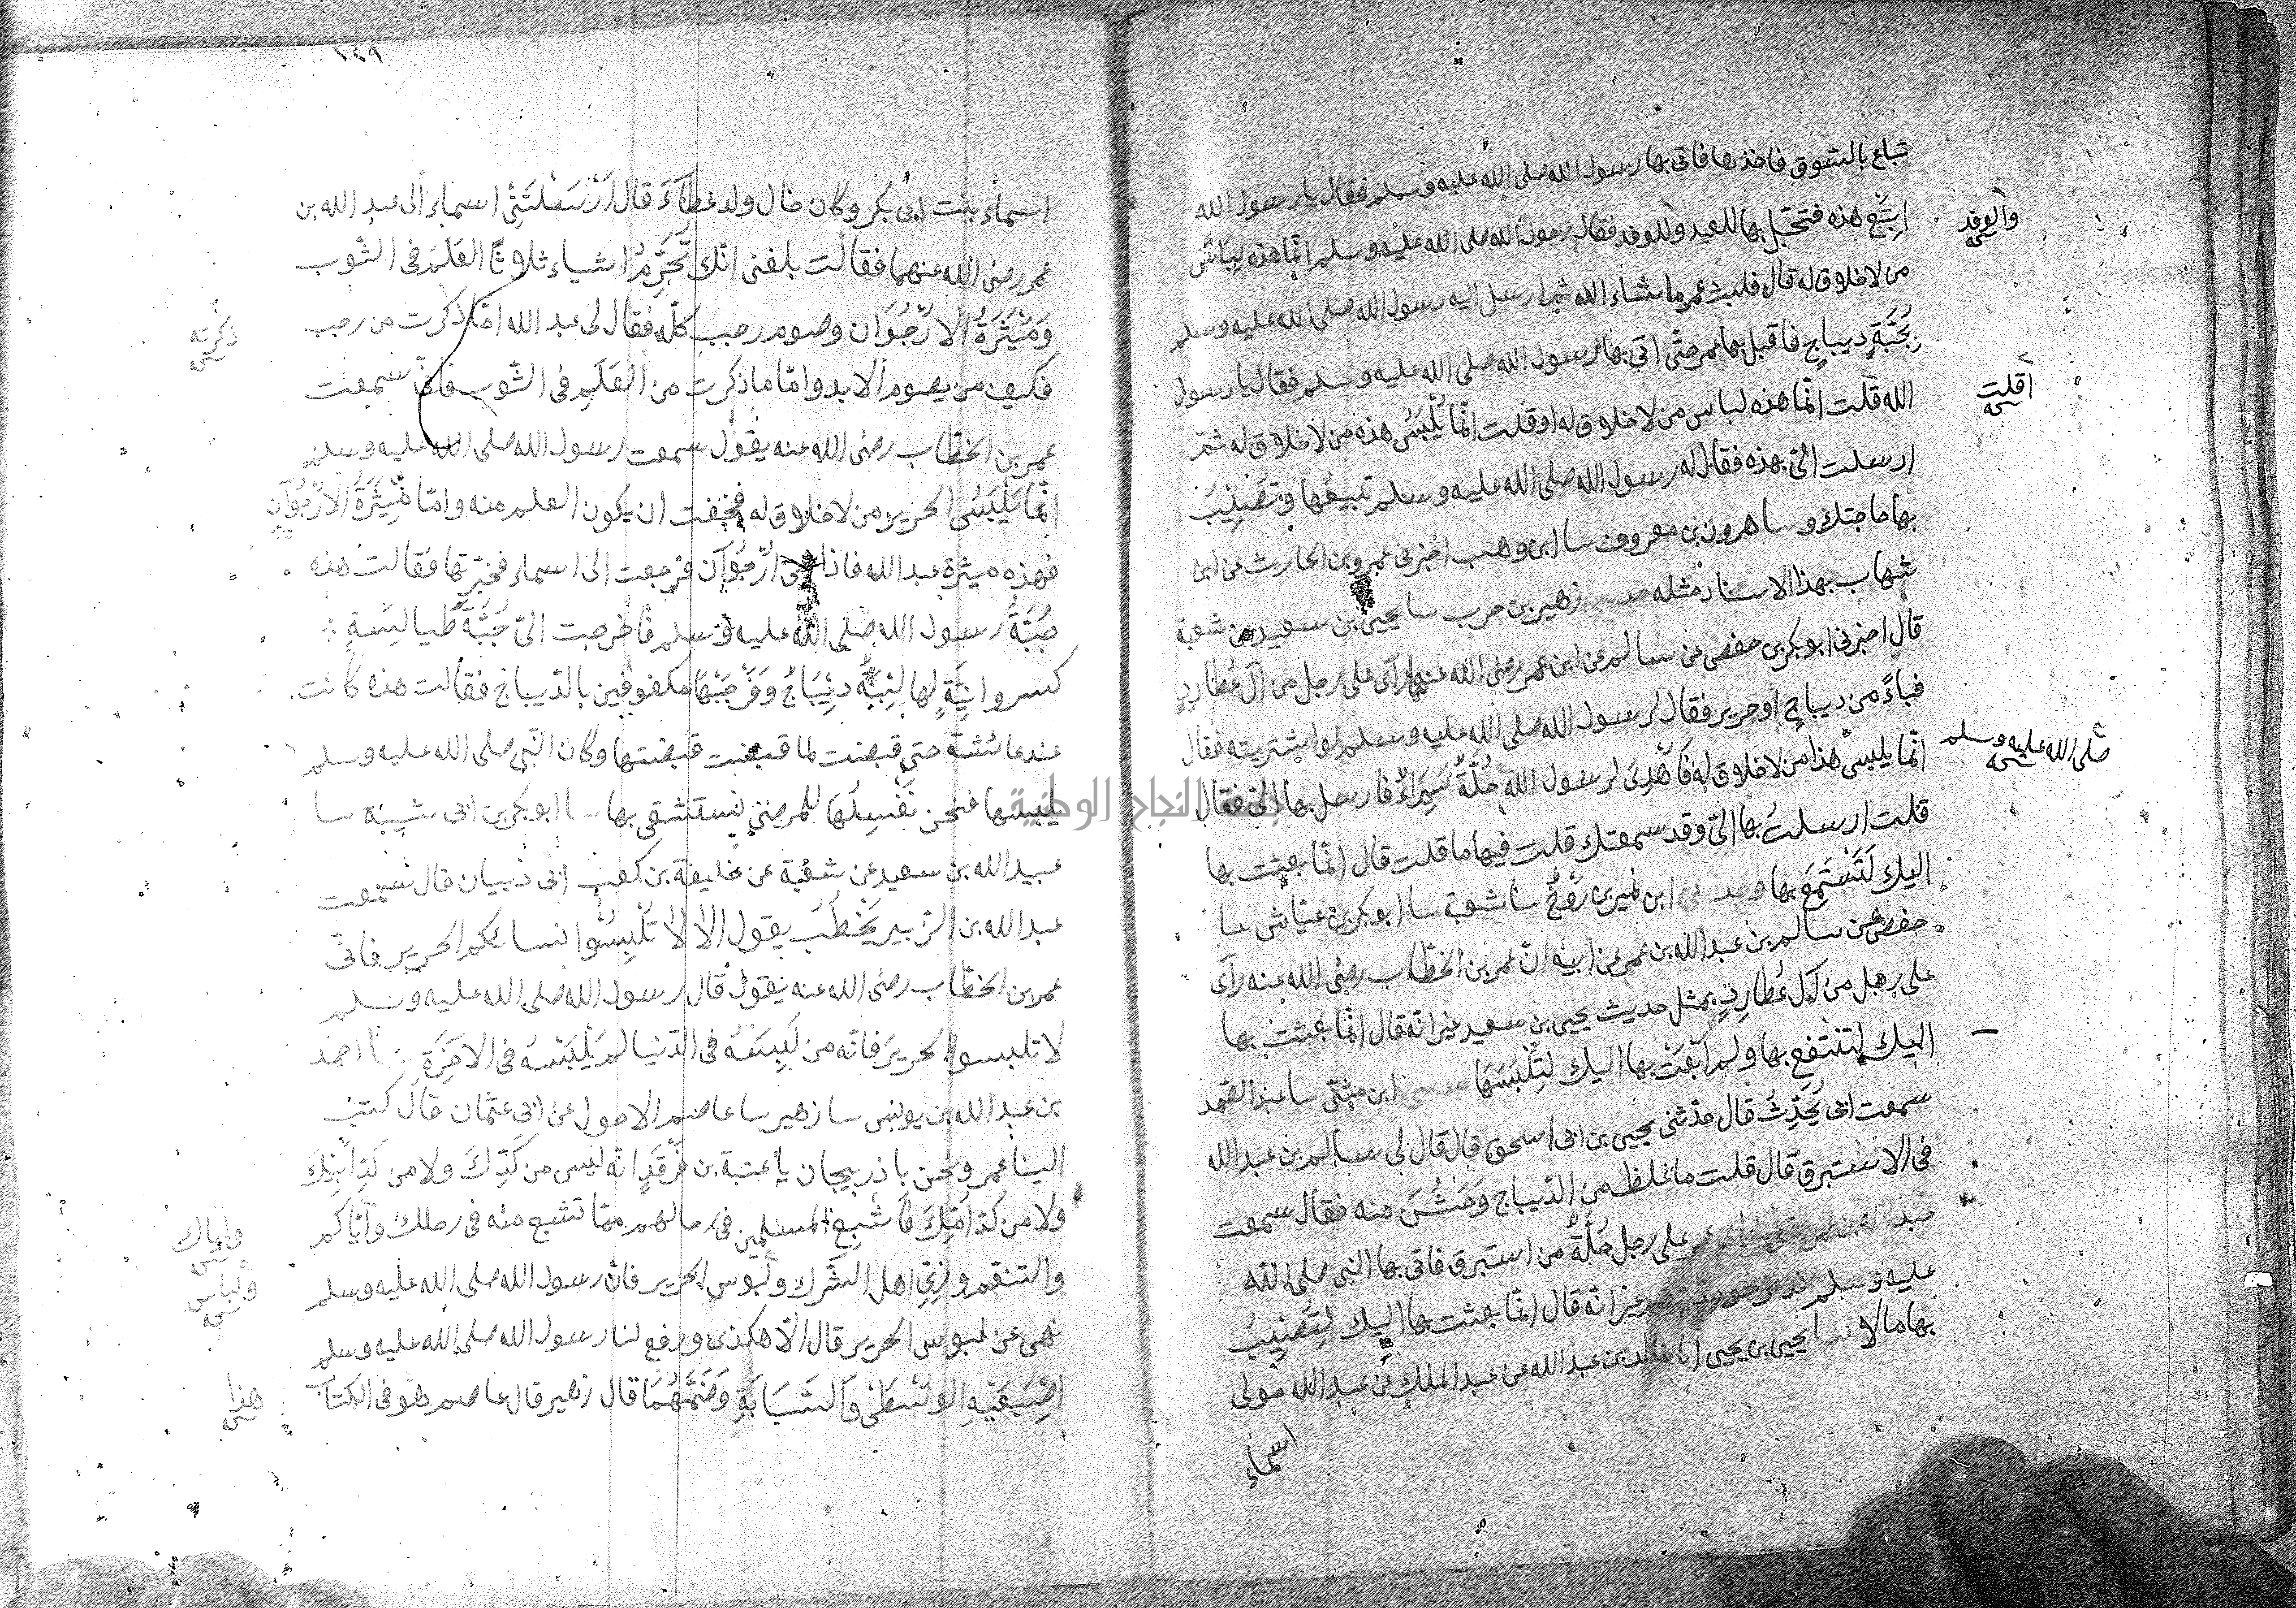 تباع بالسوق فاخذها فاتى بها رسول الله صلى الله عليه وسلم فقال يا رسول الله
ابتع هذه فتجمل بها للعيد وللوفد فقال رسول الله صلى الله عليه وسلم انما هذه لباس
والوفد
من لا خلاق له قال فلبث عمر ما شاء الله ثم ارسل اليه رسول الله صلى الله عليه وسلم
بجبة ديباج فاقبل بها عمر حتى اتى بها رسول الله صلى الله عليه وسلم فقال يا رسول
الله قلت انما هذه لباس من لا خلاق له او قلت انما يلبس هذه من لا خلاق له ثم
اقلت
ارسلت الى بهذه فقال له رسول الله صلى الله عليه وسلم تبيعها وتصيب
بها حاجتك و سا هرون بن معروف سا ابن وهب اخبرنى عمرو بن الحارث عن ابن
شهاب بهذا الاسناد مثله حدسى زهير بن حرب سا يحيى بن سعيد عن شعبة
قال اخبرنى ابو بكر بن حفص عن سالم عن ابن عمر رضى الله عنهما راى على رجل من آل عُطارِدٍ
قباءً من ديباج او حرير فقال لرسول الله صلى الله عليه وسلم لو اشتريته فقال
انما يلبس هذا من لا خلاق له فَاُهْدِىَ لرسول الله حُلَّةٌ سِيَرَاءُ فارسل بها الى فقال
صلى الله عليه وسلم
قلت ارسلتَ بها الى وقد سمعتك قلت فيها ما قلت قال انما بعثت بها
اليك لتستمتع بها وحدسى ابن نمير بن رَوْحٌ سا شعبة سا ابو بكر بن عياش سا
حفص عن سالم بن عبد الله بن عمر عن ابيه ان عمر بن الخطاب رضى الله عنه راى
على رجل من آل عُطارِدٍ بمثل حديث يحيى بن سعيد غير انه قال انما بعثت بها
اليك لتنتفع بها ولم ابعث بها اليك لِتَلْبَسَهَا حدسى ابن مثنى سا عبد الصمد
سمعت ابى يُحَدِّثُ قال حدثنى يحيى بن ابى اسحق قال قال لى سالم بن عبد الله
فى الاستبرق قال قلت ما غلظ من الديباج وَخَشُنَ منه فقال سمعت
عبد الله بن عمر يقول راى عمر على رجل حُلَّةً من استبرق فاتى بها النبى صلى الله
عليه وسلم فذكر نحو حديثهم غير انه قال انما بعثت بها اليك لِتُصِيْبَ
بها مالا سا يحيى بن يحيى انا خالد بن عبد الله عن عبد الملك عن عبد الله مولى
اسماء
١٤٩
اسماء بنت ابى بكر وكان خال ولد عَطَاءَ قال اَرْسَلَتْنِى اسماء الى عبد الله بن
عمر رضى الله عنهما فقالت بلغنى انك تُحَرِّمُ اشياء ثلاثا العَلَمَ فى الثوب
وَمِيْثَرَةَ الاُرْجُوَان وصوم رجب كلِّه فقال لى عبد الله اما ذكرت من رجب
ذكرته
فكيف من يصوم الابد واما ما ذكرت من العَلَمِ فى الثوب فانى سمعت
عمر بن الخطاب رضى الله عنه يقول سمعت رسول الله صلى الله عليه وسلم
انما يَلْبَسُ الحرير من لا خلاق له فخفت ان يكون العلم منه واما مِيْثَرَةُ الاُرْجُوَان
فهذه ميثرة عبد الله فاذا هى ارجوان فرجعت الى اسماء فخبرتها فقالت هذه
جُبَّةُ رسول الله صلى الله عليه وسلم فاخرجت الىّ جُبَّةَ طَيالِسَةٍ
كسروانِيَّةٍ لها لِبْنَةُ دِيْبَاجٌ وَفَرْجَيْهَا مكفوفين بالديباج فقالت هذه كانت
عند عائشة حتى قبضت لما قبضت قبضتها وكان النبى صلى الله عليه وسلم
يلبسها فنحن نَغْسِلُهَا للمرضى نستشفى بها سا ابو بكر بن ابى شيبة سا
النجاح الوطنية
عبيد الله بن سعيد عن شعبة عن خليفة بن كعب ابى ذبيان قال سمعت
عبد الله بن الزبير يَخْطُبُ يقول الا لا تُلْبِسُوا نساءكم الحرير فانى
عمر بن الخطاب رضى الله عنه يقول قال رسول الله صلى الله عليه وسلم
لا تلبسوا الحرير فانه من لَبِسَهُ فى الدنيا لم يَلْبَسْهُ فى الآخِرَةِ سا احمد
بن عبد الله بن يونس سا زهير سا عاصم الاحول عن ابى عثمان قال كتب
الينا عمر ونحن باذربيجان يا عتبة بن فَرْقَدٍ انه ليس من كَدِّكَ ولا من كَدِّ اَبِيْكَ
ولا من كدّ اُمِّكَ فَاَشْبِعِ المسلمين فى رحالهم مما تشبع منه فى رحلك واياكم
واياك
والتنعم وزِىَّ اهل الشرك ولبوس الحرير فان رسول الله صلى الله عليه وسلم
ولباس
نهى عن لبوس الحرير قال الا هكذى ورفع لنا رسول الله صلى الله عليه وسلم
اِصْبَعَيْهِ الوُسْطَى وَالسَّبَابَةِ وَضَمَّهُمَا قال زهير قال عاصم هو فى الكتاب
هذا